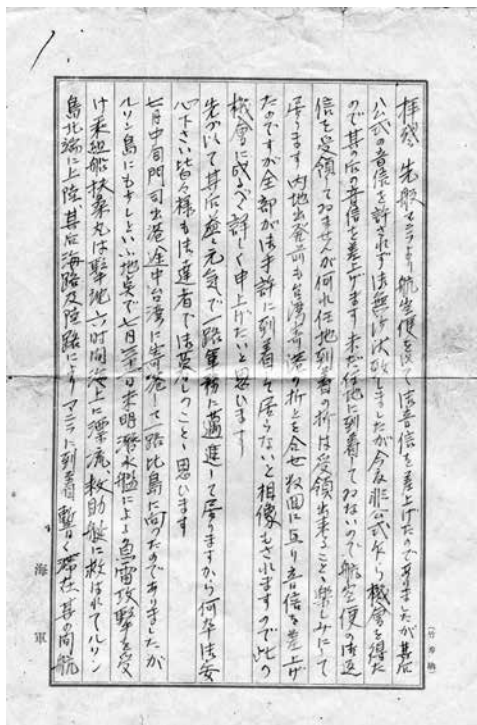 拝啓 先般マニラより航空便を以て御音信を差上げたのでありましたが其后
ハ公式の音信を許されず御無沙汰致しましたが今度非公式乍ら機會を得た
ので其の后の音信を差上げます 未だ任地に到着してゐないので航空便の御返
信を受領してゐませんが何れ任地到着の折は受領出来ること、楽みにして
居ります 内地出発前も台湾寄港の折とを合せ数回に亘り音信を差上げ
たのですが全部が御手許に到着して居らないと想像もされますので此の
機會に成るべく詳しく申上げたいと思います
先づ以て其后益々元気で一路軍務に邁進して居りますから何卒御安
心下さい皆々様も御達者で御暮しのこと、思います
七月中旬門司出港途中台湾に寄港して一路比島に向ったのでありましたが
ルソン島にも少しといふ地点で七月三十一日未明潜水艦による魚雷攻撃を受
け乗組船扶桑丸は撃沈六时间海上に漂流救助艇に救はれてルソン
島北端に上陸其后海路及陸路によりマニラに到着暫く滞在其の间航
海軍